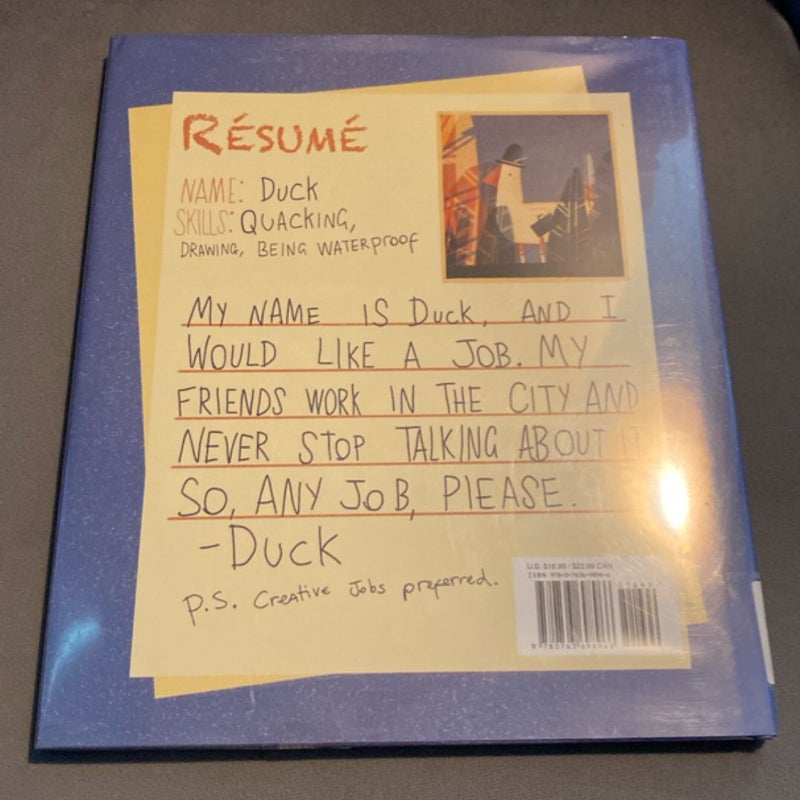 RÉSUMÉ
NAME: Duck
SKILLS: QUACKING,
DRAWING, BEING WATERPROOF
MY NAME IS Duck, AND I
WOULD LIKE A JOB. MY
FRIENDS WORK IN THE CITY AND
NEVER STOP TALKING ABOUT IT
SO, ANY JOB, PlEASE.
-Duck
P.S. Creative Jobs preferred.
U.S. $16.99 / $22.99 CAN
ISBN 978-0-7636-9896-6
9 780763 698966